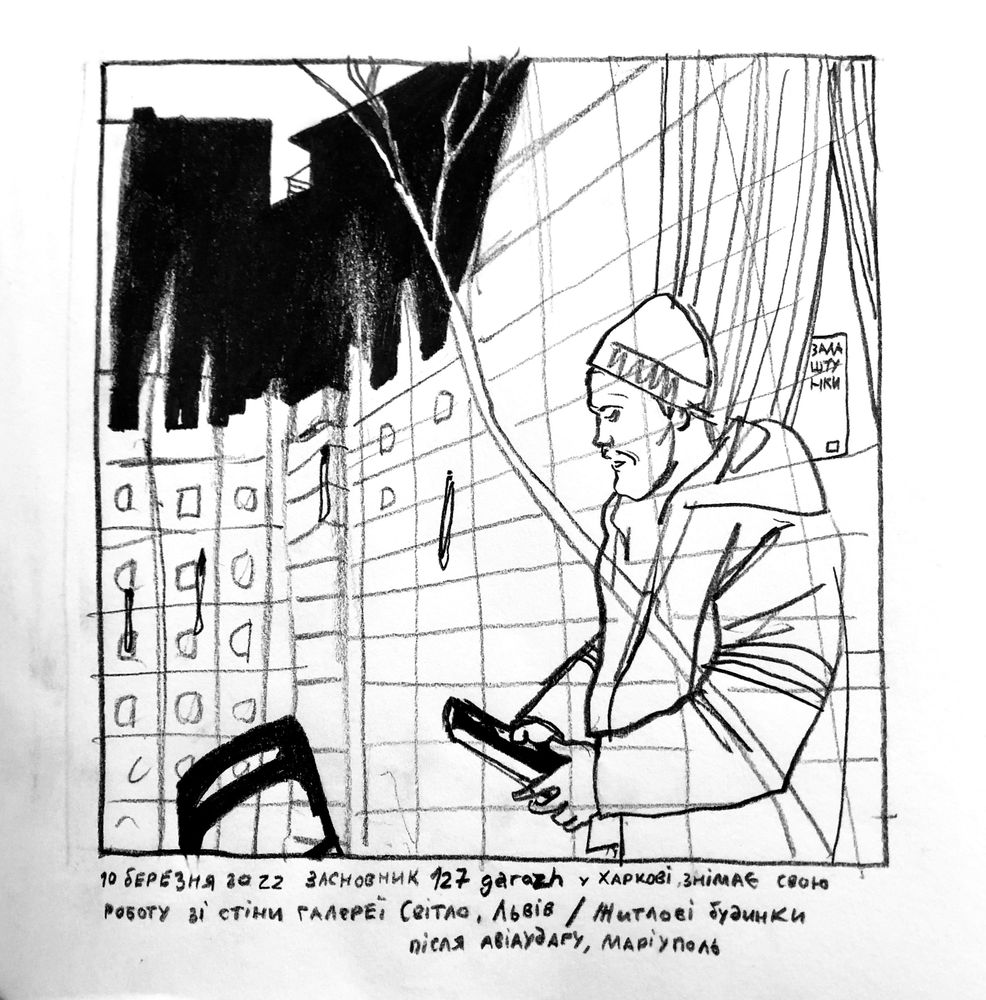 ЗАЛА
ШТУ
НКИ
10 БЕРЕЗНЯ 2022 ЗАСНОВНИК 127 garazh у ХАРКОВІ ЗНІМАЄ СВОЮ
РОБОТУ ЗІ СТІНИ ГАЛЕРЕЇ СВІТЛО, ЛЬВІВ / ЖИТЛОВІ БУДИНКИ
ПІСЛЯ АВІАУДАРУ, МАРІУПОЛЬ